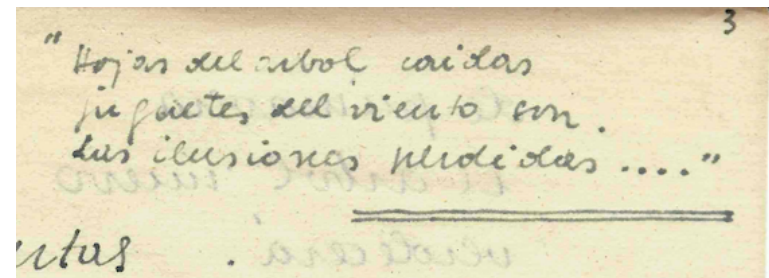 3
"Hojas del arbol caidas
juguetes del viento son.
Las ilusiones perdidas ...."